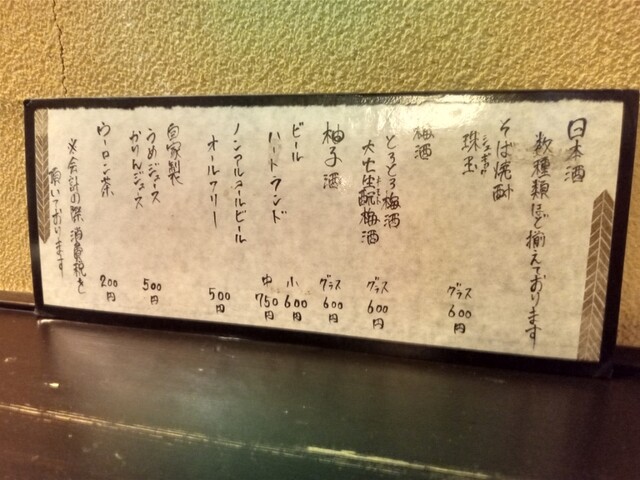 日本酒
数種類ほど揃えております
そば焼酎
珠玉 グラス 600円
梅酒
とろとろ梅酒
大七生酛梅酒 グラス 600円
柚子酒 グラス 600円
ビール 小 600円
ハートランド 中 750円
ノンアルコールビール
オールフリー 500円
自家製
うめジュース
かりんジュース 500円
ウーロン茶 200円
※会計の際消費税を
頂いております